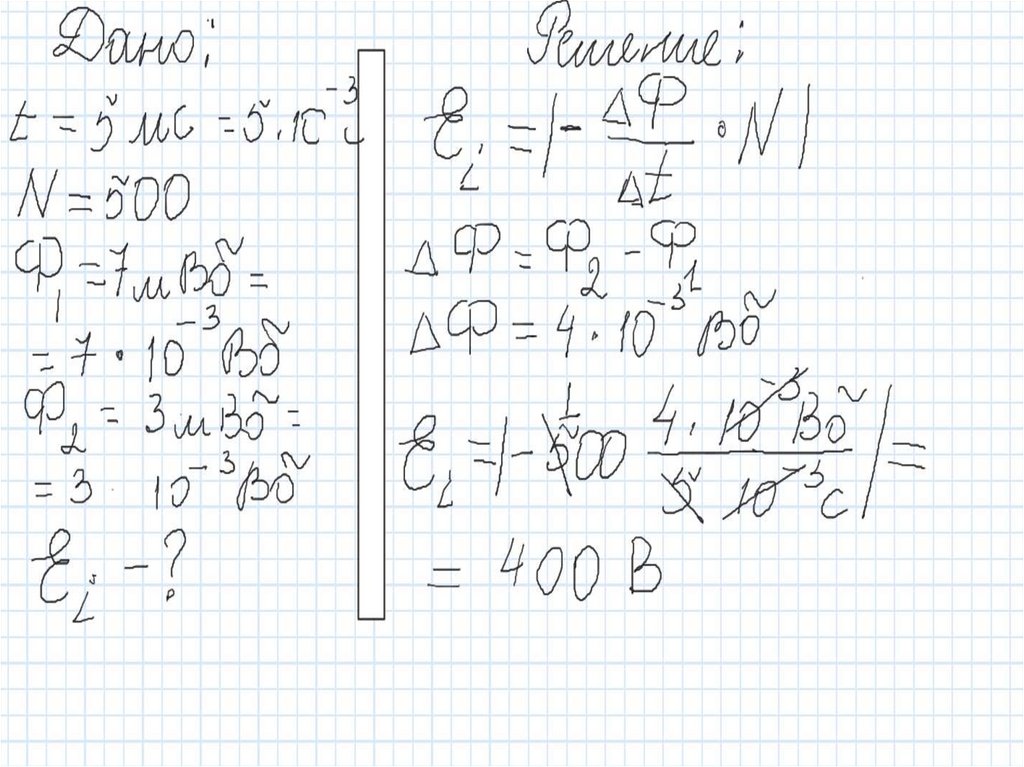 Дано:
t = 5 мс = 5·10⁻³ с
N = 500
Ф₁ = 7 мВб =
= 7 · 10⁻³ Вб
Ф₂ = 3 мВб =
= 3 · 10⁻³ Вб
Ɛᵢ - ?
Решение:
Ɛᵢ = |- ΔФ/Δt · N|
ΔФ = Ф₂ - Ф₁
ΔФ = 4 · 10⁻³ Вб
1
Ɛᵢ = |- 500 4 · 10⁻³ Вб / 5 · 10⁻³ с| =
= 400 В